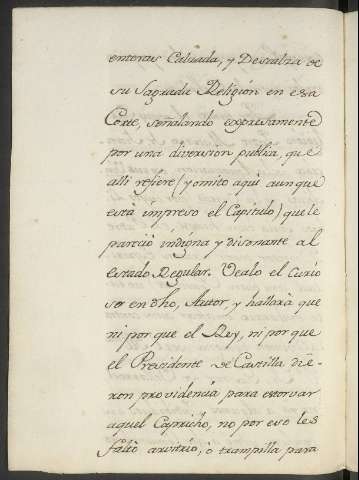 enteras Calzada, y Descalza de
su Sagrada Religión en esa
Corte, señallando expresamente
por una diversion publica, que
alli refiere (y omito aqui aunque
està impreso el Capitulo) que le
pareció indigna y disonante al
estado Regular. Vealo el Curio
so en dho, Autor, y hallarà que
ni por que el Rey, ni por que
el Presidente de Castilla die-
ron providencia para estorvar
aquel Capricho, no por eso les
faltò arvitrio, ò trampilla para